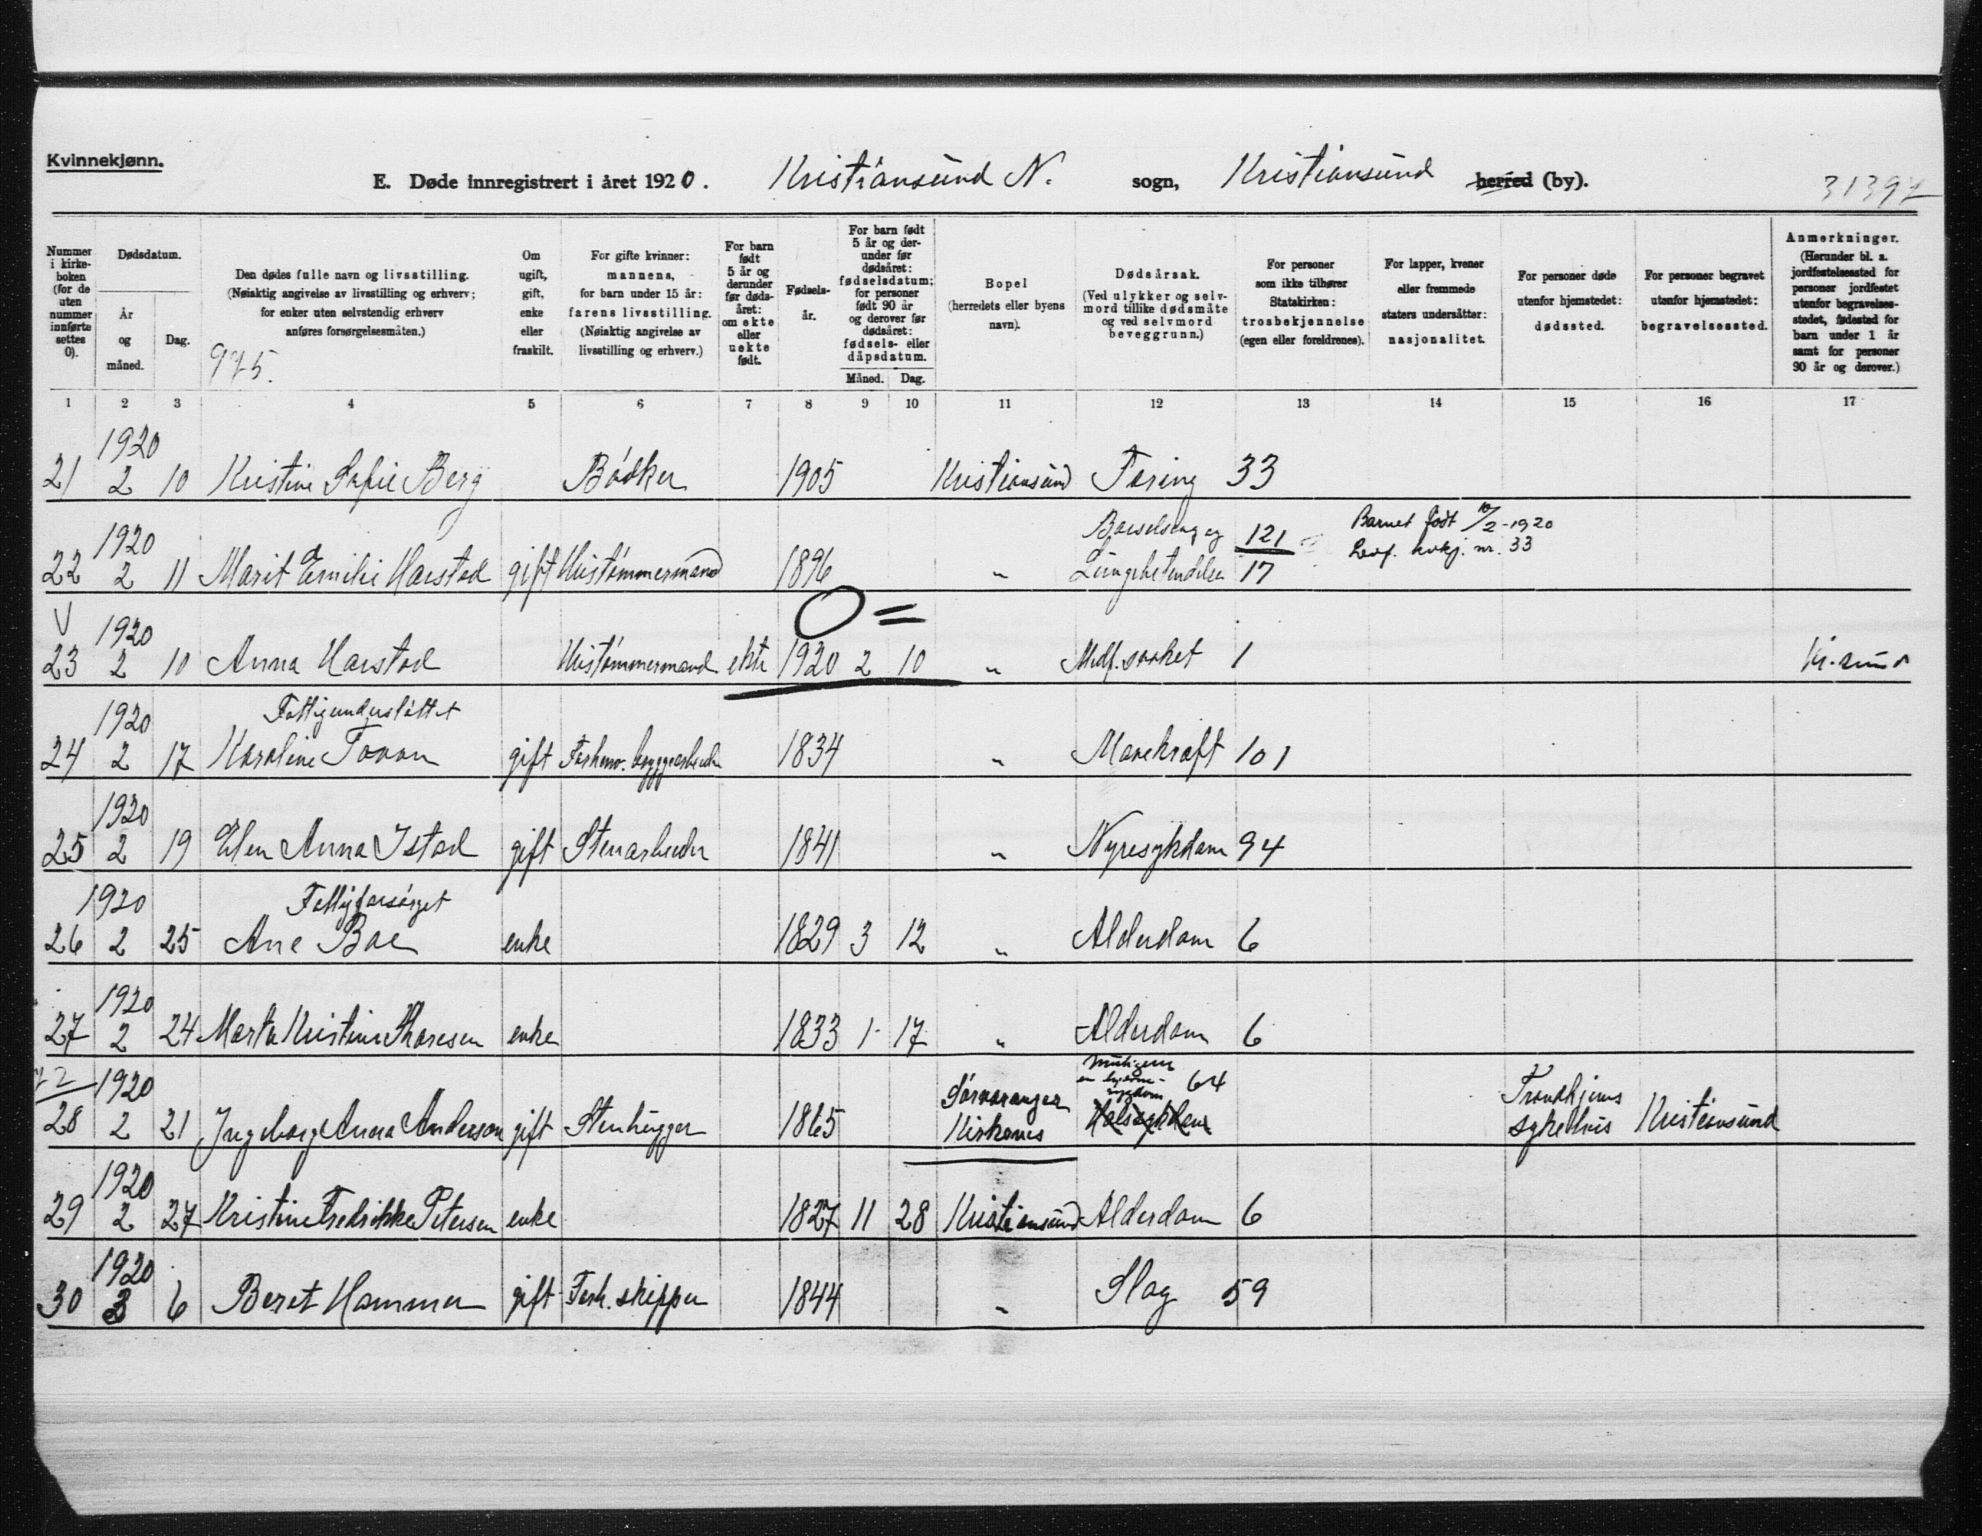 Kvinnekjønn.
E. Døde innregistrert i året 1920. Kristiansund N. sogn, Kristiansund herred (by). 31397
Nummer i kirkeboken (for de uten nummer innførte settes 0).
Dødsdatum.
År og måned.
Dag.
Den dødes fulle navn og livsstilling.
(Nøiaktig angivelse av livsstilling og erhverv;
for enker uten selvstendig erhverv
anføres forsørgelsesmåten.)
975.
Om ugift, gift, enke eller fraskilt.
For gifte kvinner: mannens, for barn under 15 år: farens livsstilling. (Nøiaktig angivelse av livsstilling og erhverv.)
For barn født 5 år og derunder før dødsåret: om ekte eller uekte født.
Fødselsår.
For barn født 5 år og derunder før dødsåret: fødselsdatum; for personer født 90 år og derover før dødsåret: fødsels- eller dåpsdatum.
Måned. Dag.
Bopel (herredets eller byens navn).
Dødsårsak. (Ved ulykker og selvmord tillike dødsmåte og ved selvmord beveggrunn.)
For personer som ikke tilhører Statskirken: trosbekjennelse (egen eller foreldrenes).
For lapper, kvener eller fremmede staters undersåtter: nasjonalitet.
For personer døde utenfor hjemstedet: dødssted.
For personer begravet utenfor hjemstedet: begravelsessted.
Anmerkninger. (Herunder bl. a. jordfestelsessted for personer jordfestet utenfor begravelsesstedet, fødested for barn under 1 år samt for personer 90 år og derover.)
1 2 3 4 5 6 7 8 9 10 11 12 13 14 15 16 17
1920
21 2 10 Kristine Sofie Berg Bødker 1905 Kristiansund Tæring 33
1920 Barselseng og 121 Barnet født 10/2-1920
22 2 11 Marit Emilie Harstad gift Hustømmermand 1896 " Lungebetendelse 17 nr. 33
V 1920
23 2 10 Anna Harstad Hustømmermand ekte 1920 2 10 " Medf. svakhet 1 Kr.sund
1920 Fattigunderstøttet
24 2 17 Karoline gift Forhenv. byggearbeider 1834 " Mavekræft 101
1920
25 2 19 Elen Anna Istad gift Stenarbeider 1841 " Nyresykdom 94
1920 Fattigforsørget
26 2 25 Ane Boe enke 1829 3 12 " Alderdom 6
1920
27 2 24 Marta Kristine Thoresen enke 1833 1 17 " Alderdom 6
1920 Sørvaranger 64 Trondhjems
28 2 21 Ingeborg Anna Anderson gift Stenhugger 1865 Kirkenes Halssykdom sykehus Kristiansund
1920
29 2 27 Kristine Fredrikke Petersen enke 1827 11 28 Kristiansund Alderdom 6
1920
30 3 6 Beret Hammer gift Forh. skipper 1844 " Slag 59